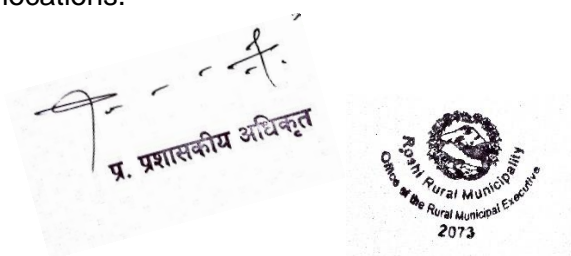 locations.
प्र. प्रशासकीय अधिकृत
Roshi Rural Municipality
Office of the Rural Municipal Executive
2073